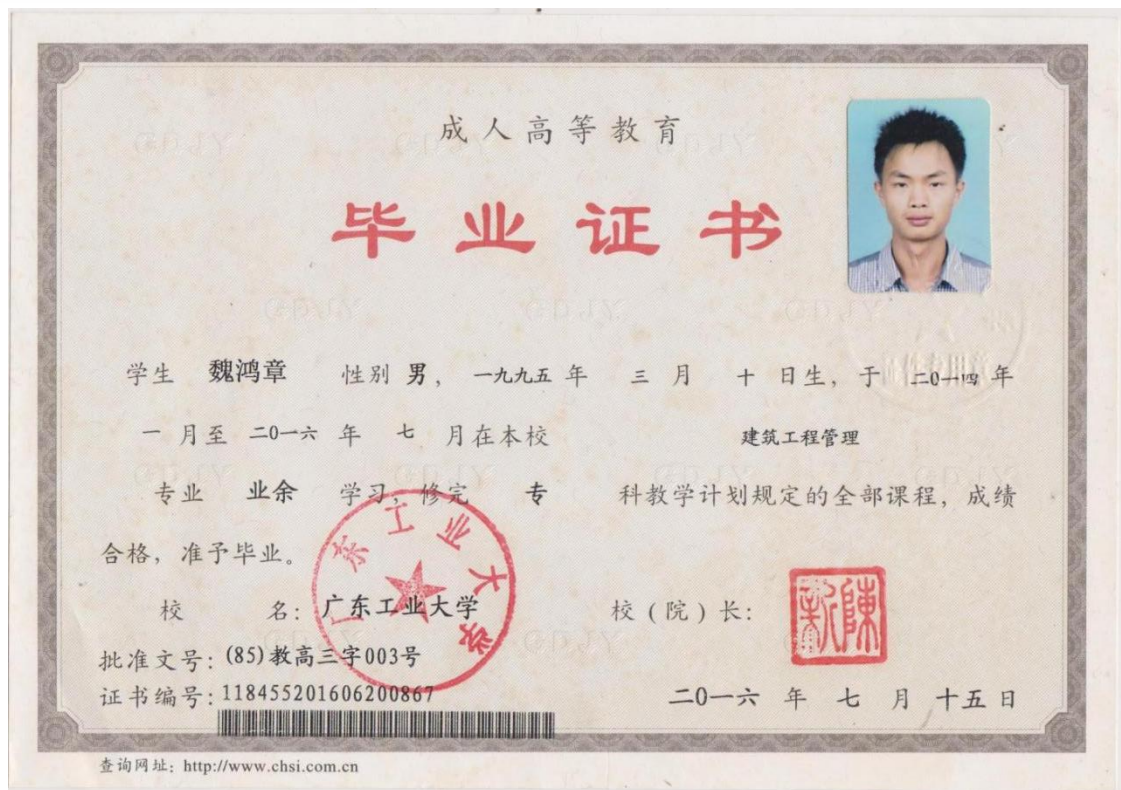 成人高等教育
毕业证书
学生 魏鸿章 性别 男， 一九九五 年 三 月 十 日生，于 二0一四 年
一 月至 二0一六 年 七 月在本校 建筑工程管理
专业 业余 学习，修完 专 科教学计划规定的全部课程，成绩
合格，准予毕业。
校 名：广东工业大学 校（院）长：
广东工业大学
批准文号：(85)教高三字003号
证书编号：118455201606200867
二0一六 年 七 月 十五 日
查询网址：http://www.chsi.com.cn